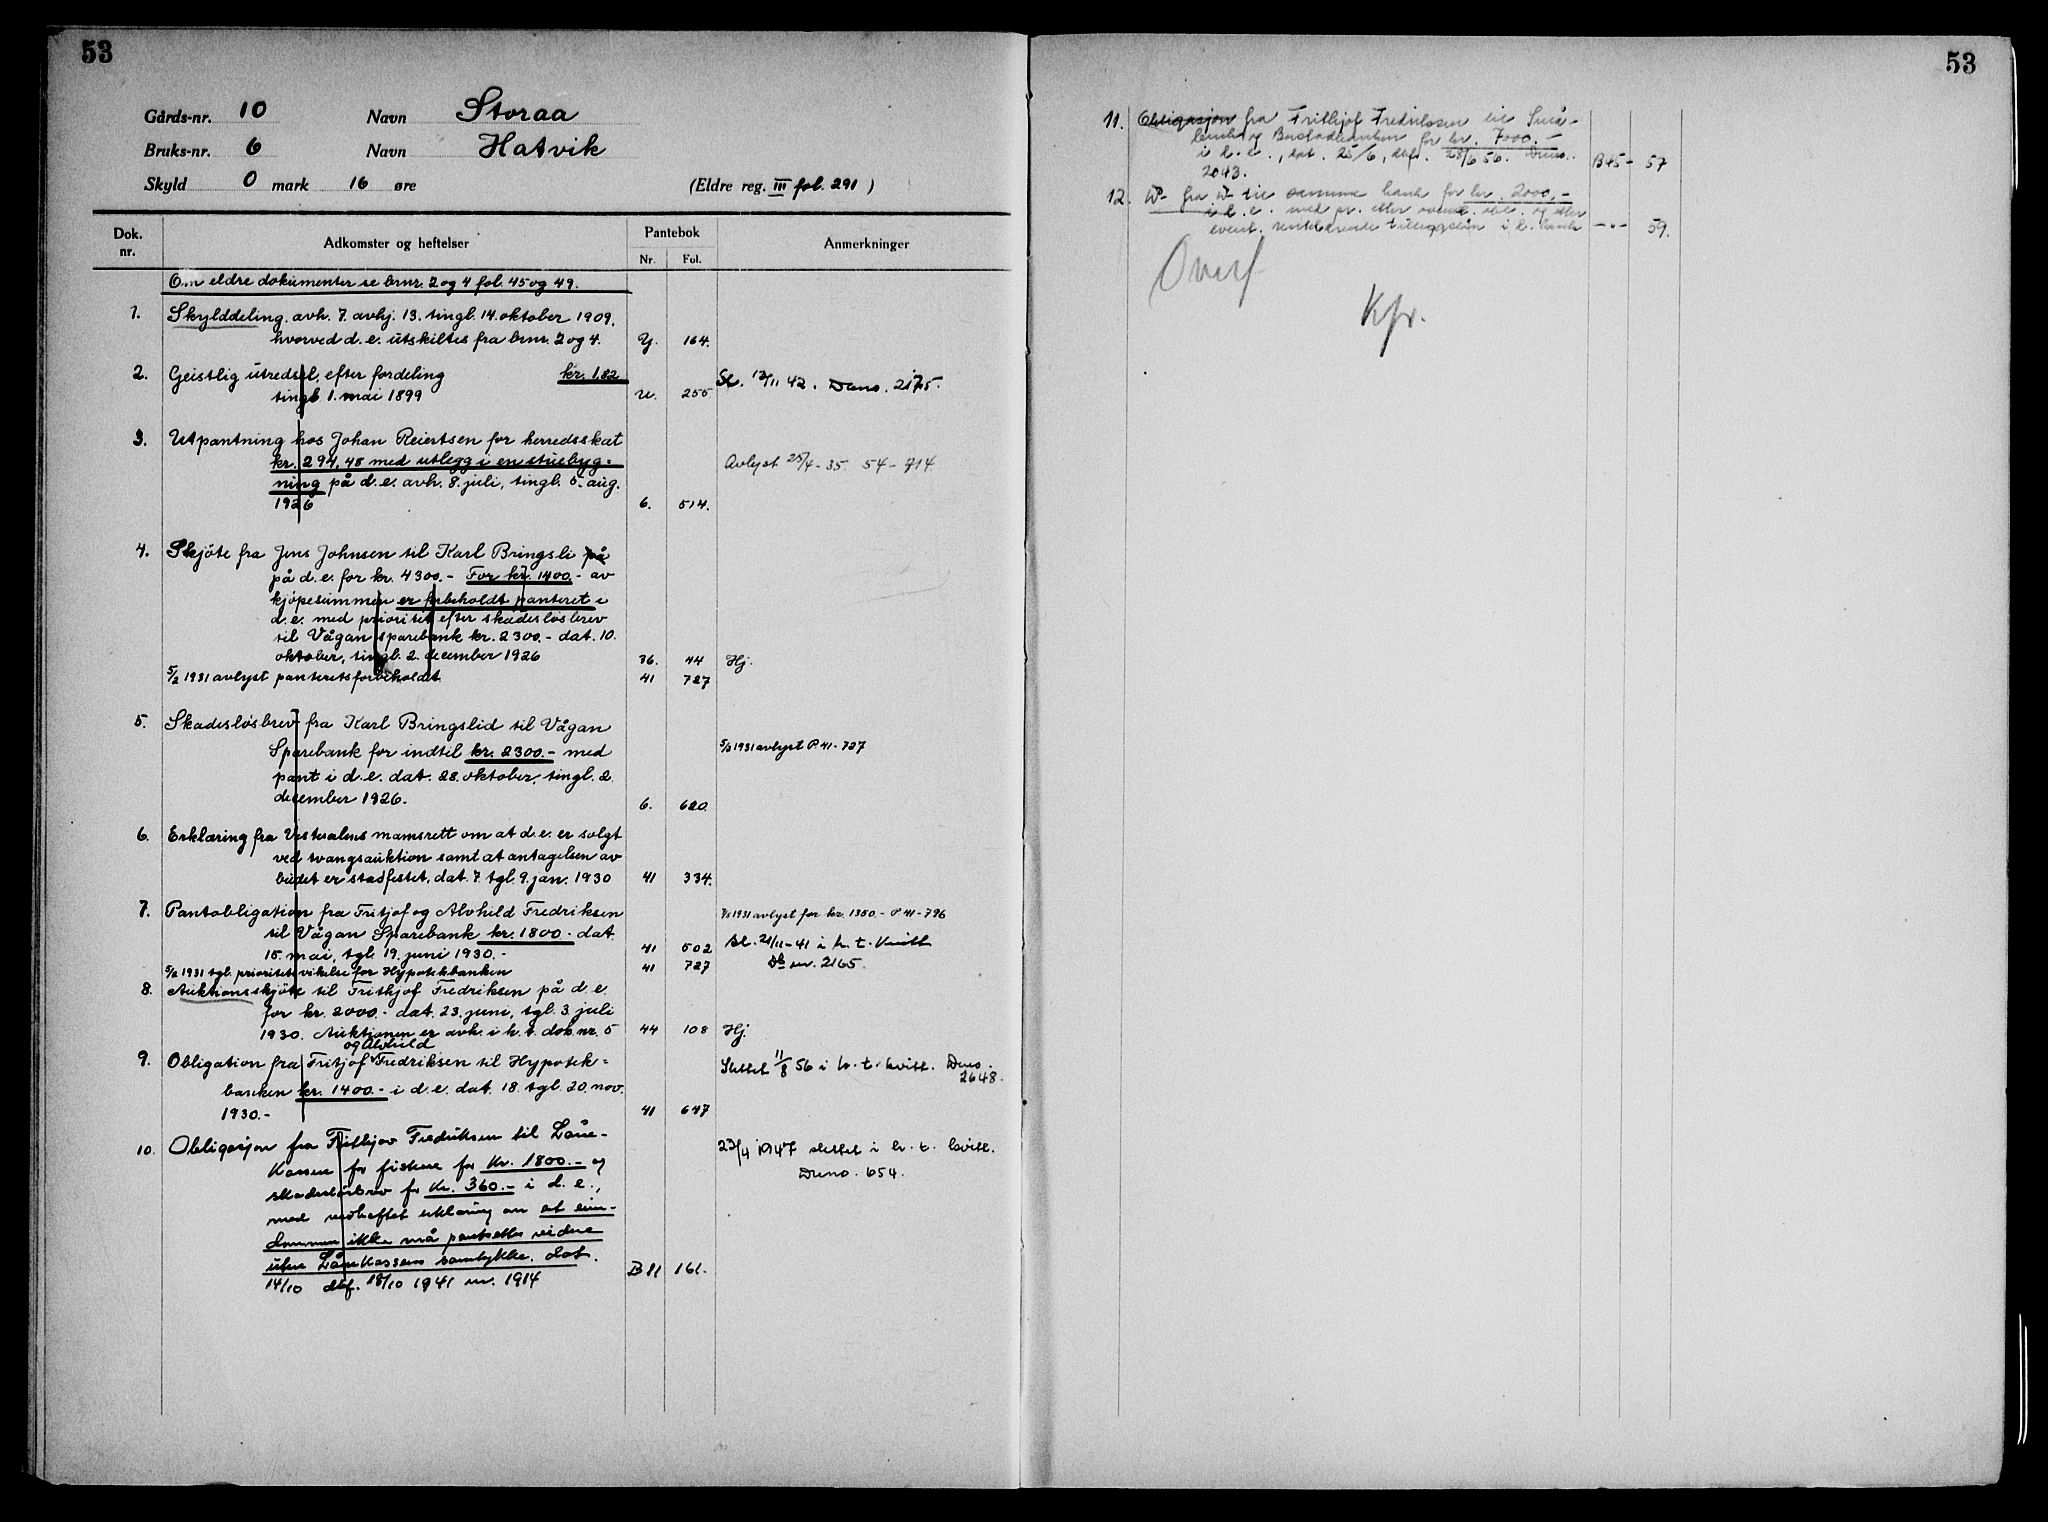 53
Gårds-nr. 10 Navn Storaa
Bruks-nr. 6 Navn Hatvik
Skyld 0 mark 16 øre (Eldre reg. III fol. 291)
Dok. nr. Adkomster og heftelser Pantebok Nr. Fol. Anmerkninger
Om eldre dokumenter se brnr. 2 og 4 fol. 45 og 49.
1. Skylddeling, avh. 7. avhj. 13. tingl. 14. oktober 1909,
hvorved d.e. utskiltes fra brnr. 2 og 4. Y. 164.
2. Geistlig utredsel, efter fordeling kr. 1,82 Sl. 12/11 42. Dnno. 2175.
tingl. 1. mai 1899 U. 255
3. Utpantning hos Johan Reiertsen for herredsskat
kr. 294,48 med utlegg i en stuebyg= Avlyst 25/4-35. 54-714
ning på d.e. avh. 8. juli, tingl. 5. aug.
1926 6. 514.
4. Skjöte fra Jens Johnsen til Karl Bringsli på
på d.e. for kr. 4300.- For kr. 1400.- av
kjöpesummen er forbeholdt panteret i
d.e. med prioritet efter skadeslösbrev
til Vågan sparebank kr. 2300.- dat. 10.
oktober, tingl. 2. december 1926 36. 44 Hj.
5/2 1931 avlyst panteretsforbeholdet 41 727
5. Skadeslösbrev fra Karl Bringslid til Vågan
Sparebank for indtil kr. 2300.- med 5/2 1931 avlyst P. 41-727
pant i d.e. dat. 28. oktober, tingl. 2.
december 1926. 6. 620.
6. Erklæring fra Vesteralens namsrett om at d.e. er solgt
ved tvangsauktion samt at antagelsen av
budet er stadfestet, dat. 7. tgl. 9. jan. 1930 41 334.
7. Pantobligation fra Fritjof og Alvhild Fredriksen 1931 avlyst for kr. 1350.- P 41-796
til Vågan Sparebank kr. 1800.- dat.
15. mai, tgl. 19. juni 1930.- 41 502 Sl. 21/11-41 i h. t. kvitt.
5/2 1931 tgl. prioritetsvikelse for Hypotekbanken 41 727 Db nr. 2165.
8. Auktionsskjöte til Frithjof Fredriksen på d.e.
for kr. 2000.- dat. 23. juni, tgl. 3. juli
1930. Auktionen er avh. i h.t. dok. nr. 5 44 108 Hj.
og Alvhild
9. Obligation fra Fritjof Fredriksen til Hypotek= Slettet 11/8 56 i h. t. kvitt. Dnno.
banken kr. 1400.- i d.e. dat. 18. tgl. 20. nov. 2648.
1930.- 41 647
10. Obligasjon fra Frithjov Fredriksen til Låne- 23/4 1947 slettet i h. t. kvitt.
kassen for fiskere for kr. 1800.- og Dnno. 654.
skadeslösbrev for kr. 360.- i d. e.,
med vedheftet erklæring om at eien-
dommen ikke må pantsettes videre
uten Lånekassens samtykke. dat.
14/10 dbf. 18/10 1941 nr. 1914 B 11 161.
53
11. Obligasjon fra Frithjof Fredriksen til Små-
bruk og Bustadbanken for kr. 7000.-
i d. e., dat. 25/6, dbf. 28/6 56. Dnno.
2043. B45- 57
12. Do fra do til samme bank for kr. 2000.-
i d. e. med pr. etter ovenn. obl. og etter
event. rentebærende tilleggslån i s. bank -"- 59.
Overf
Kfr.